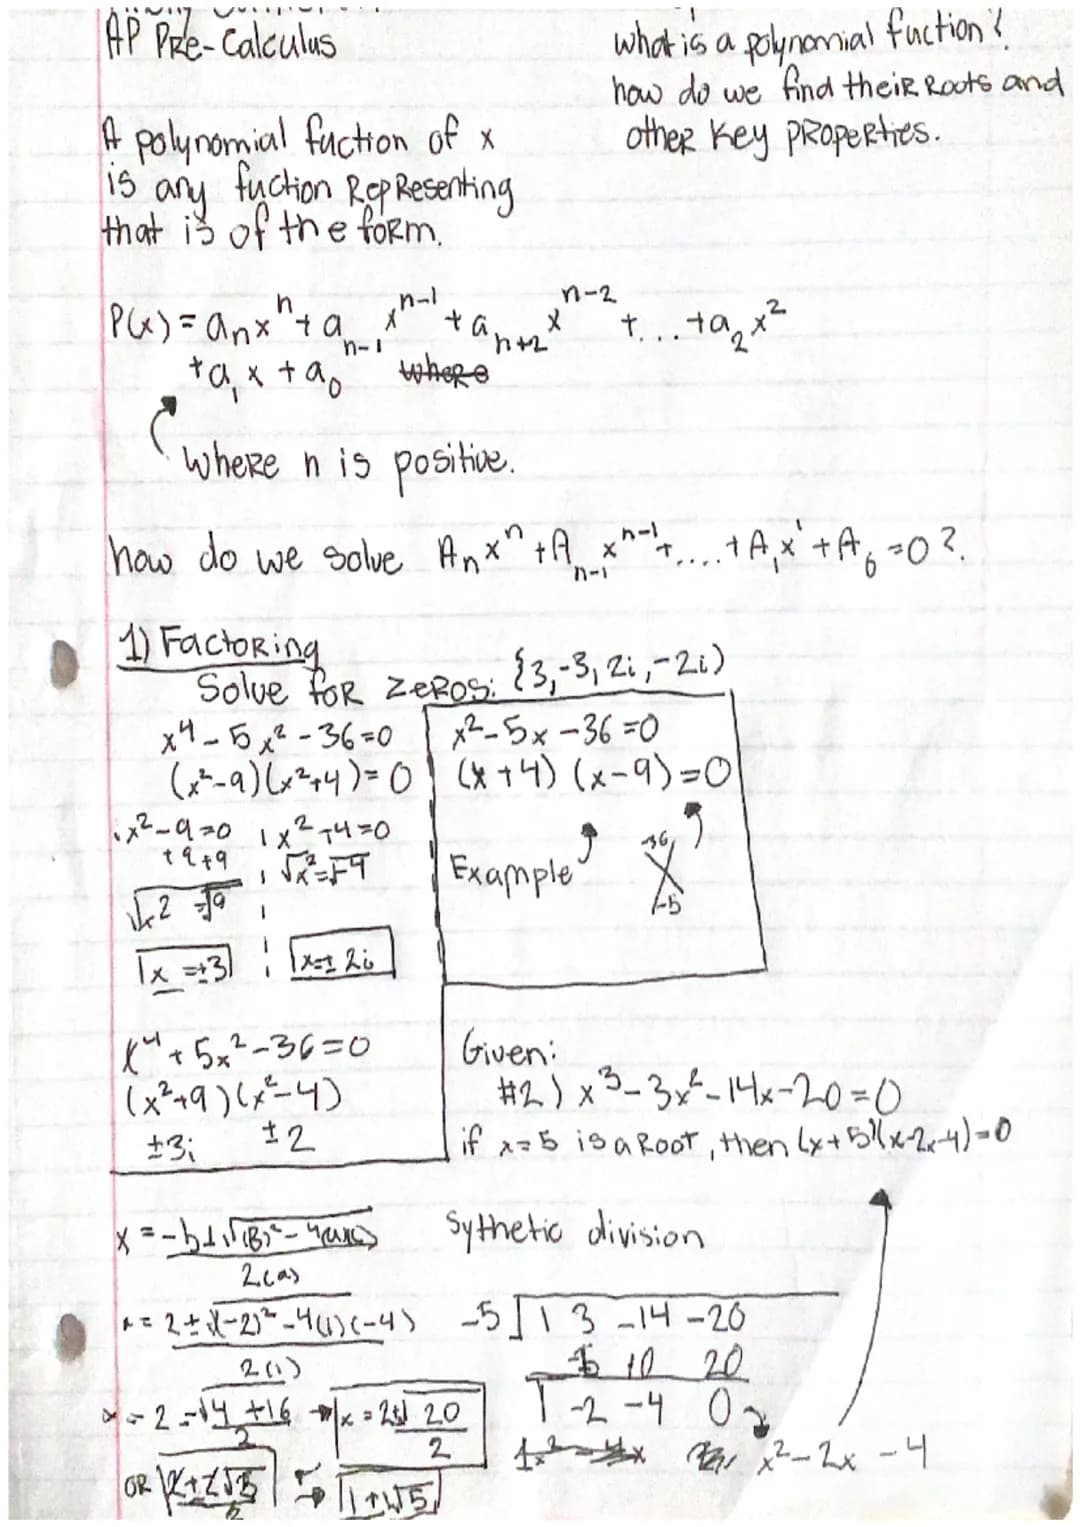 AP PRe-Calculus
what is a polynomial fuction?
how do we find theiR Roots and
otheR Key pRopeRties.
A polynomial fuction of x
is any fuction RepResenting
that is of the foRm.
P(x) = aₙxⁿ + aₙ₋₁ xⁿ⁻¹ + aₙ₊₂ xⁿ⁻² + ... + a₂x²
+ a₁x + a₀
wheRe n is positive.
how do we solve Aₙxⁿ + Aₙ₋₁ xⁿ⁻¹ + .... + A₁x¹ + A₀ = 0?
1) FactoRing
Solve foR zeRos: {3, -3, 2i, -2i)
x⁴ - 5x² - 36 = 0
(x² - 9)(x² + 4) = 0
x² - 9 = 0 | x² + 4 = 0
+9 +9
√x² = √9
x = ±3
x = ± 2i
x² - 5x - 36 = 0
(x + 4) (x - 9) = 0
Example
-36
-5
x⁴ + 5x² - 36 = 0
(x² + 9)(x² - 4)
±3i ±2
Given:
#2) x³ - 3x² - 14x - 20 = 0
if x = 5 is a Root, then (x + 5)(x - 2x - 4) = 0
x = -b ± √(B)² - 4(a)(c)
2(a)
x = 2 ± √(-2)² - 4(1)(-4)
2(1)
x = 2 - √4 + 16 → x = 2 ± √20
2 2
OR
1 + √5
Sythetic division
-5 | 1 3 -14 -20
10 20
1 -2 -4 0
x² - 2x - 4